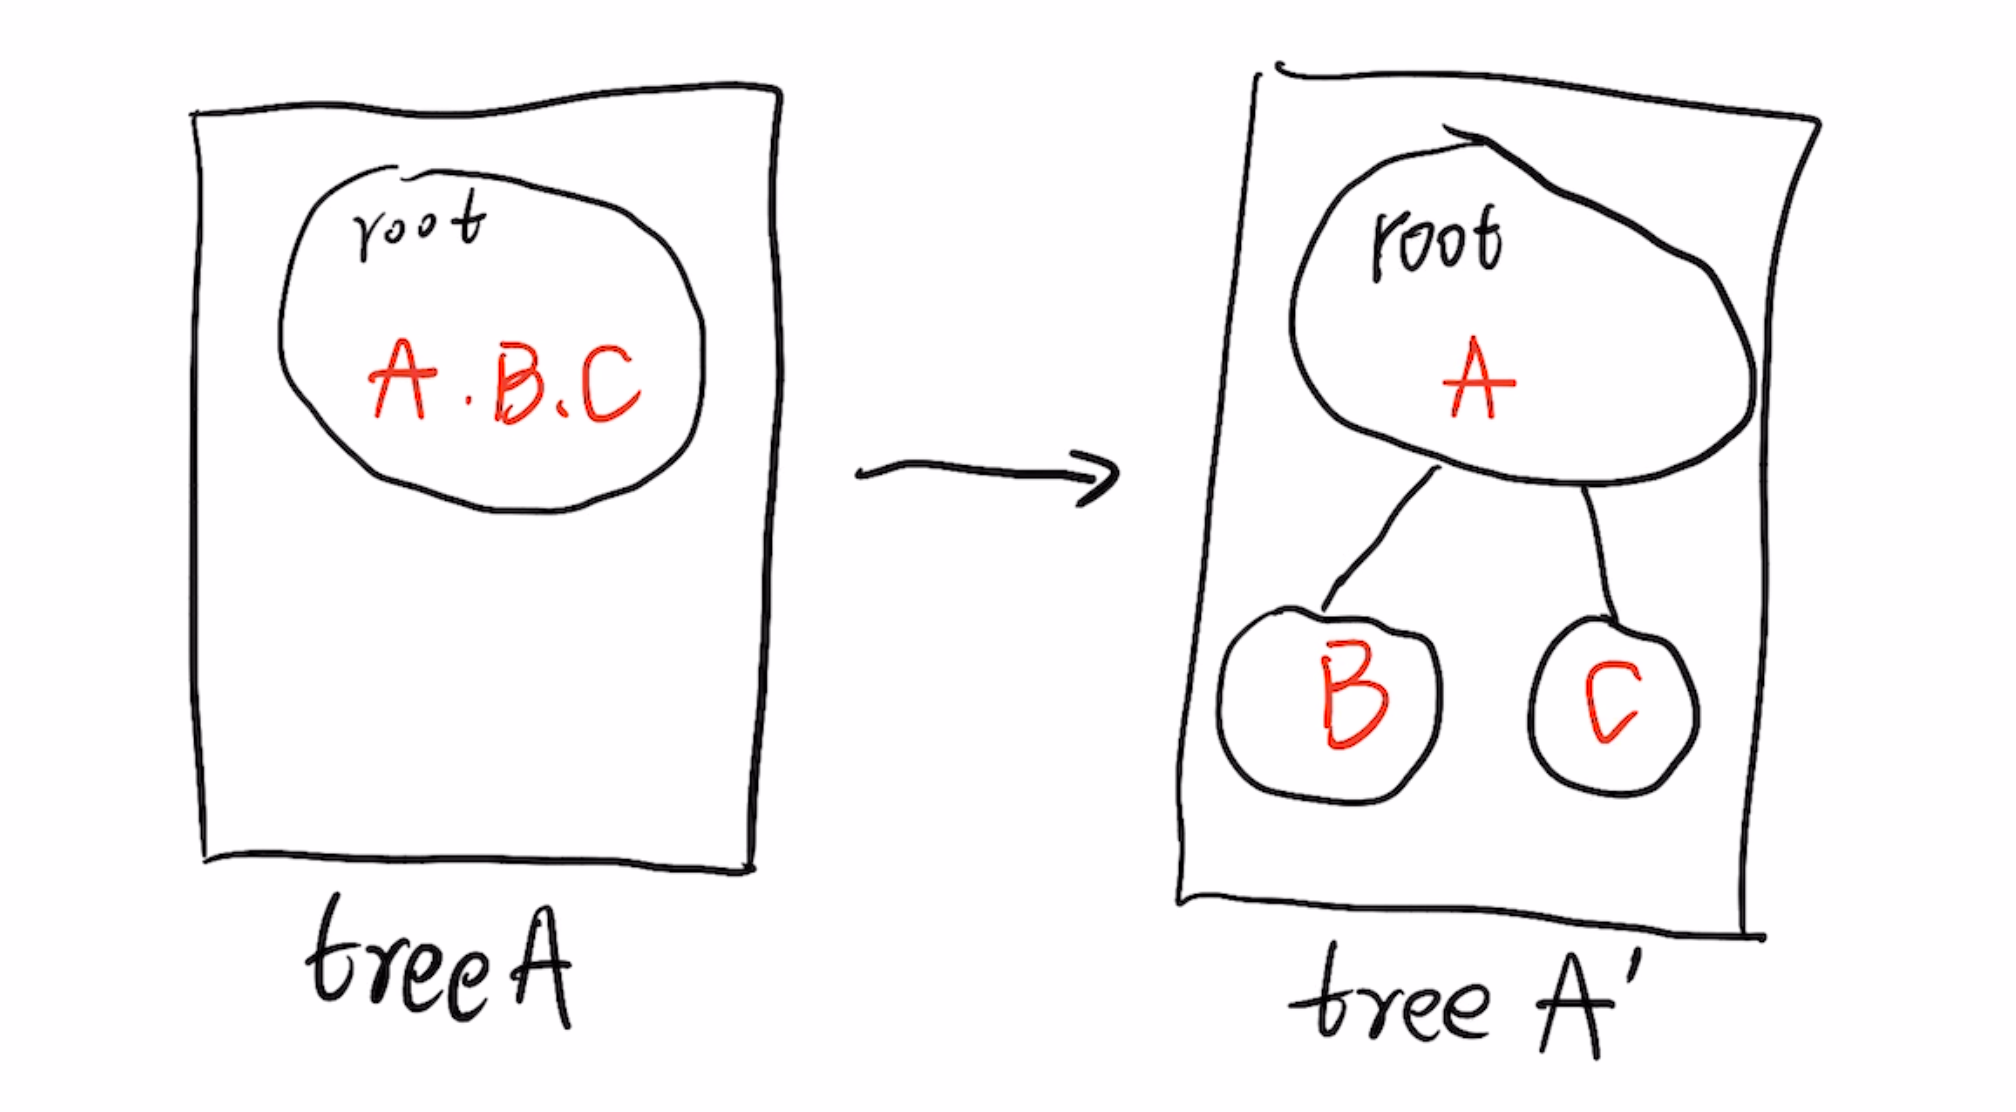 root
A.B.C
tree A
root
A
B
C
tree A'